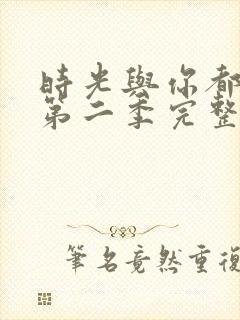 時光與你都
第二季完整
筆名竟然重復